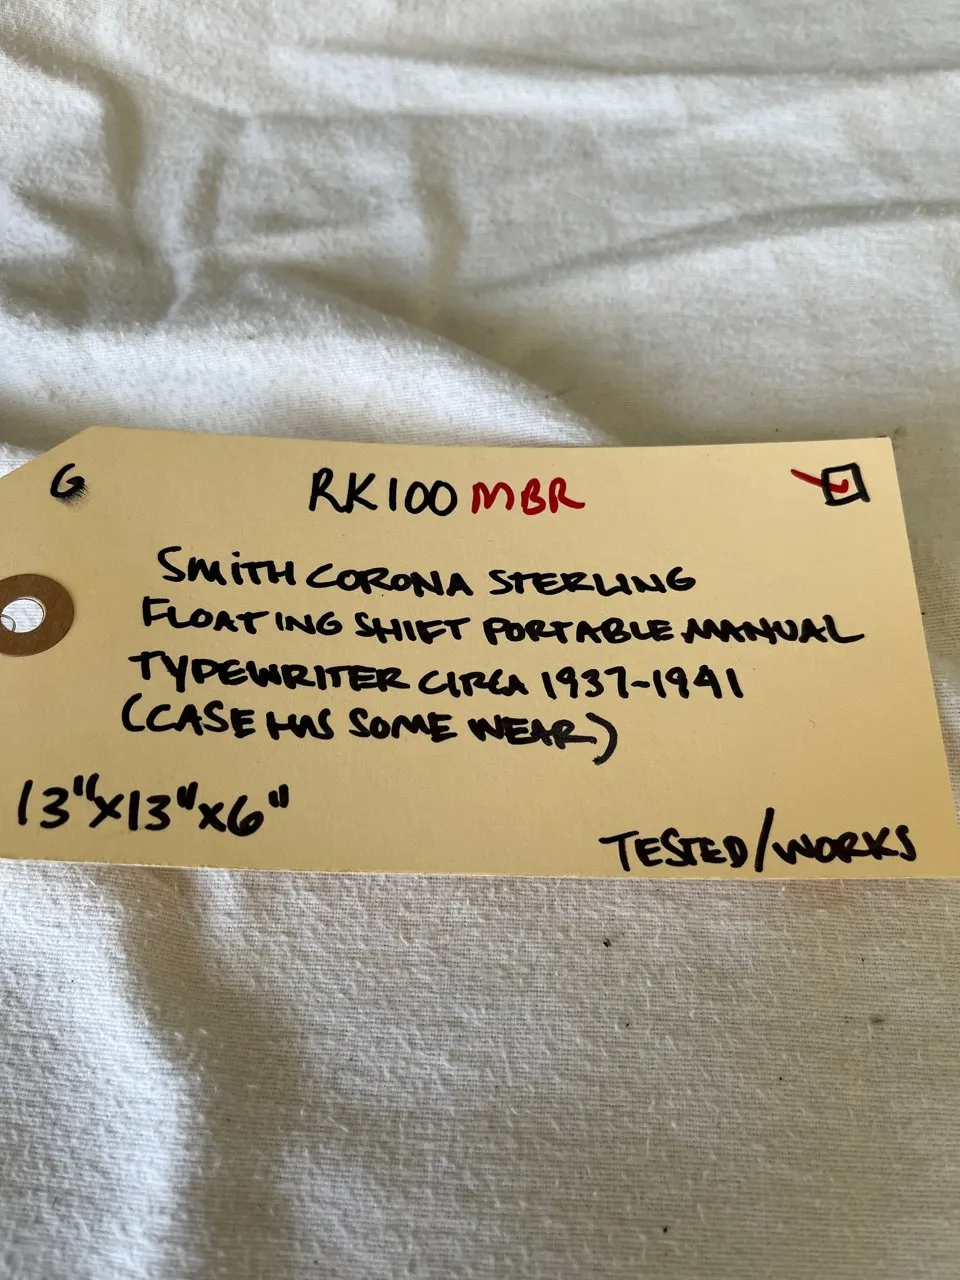 G
RK100 MBR
SMITH CORONA STERLING
FLOATING SHIFT PORTABLE MANUAL
TYPEWRITER CIRCA 1937-1941
(CASE HAS SOME WEAR)
13"x13"x6"
TESTED/WORKS